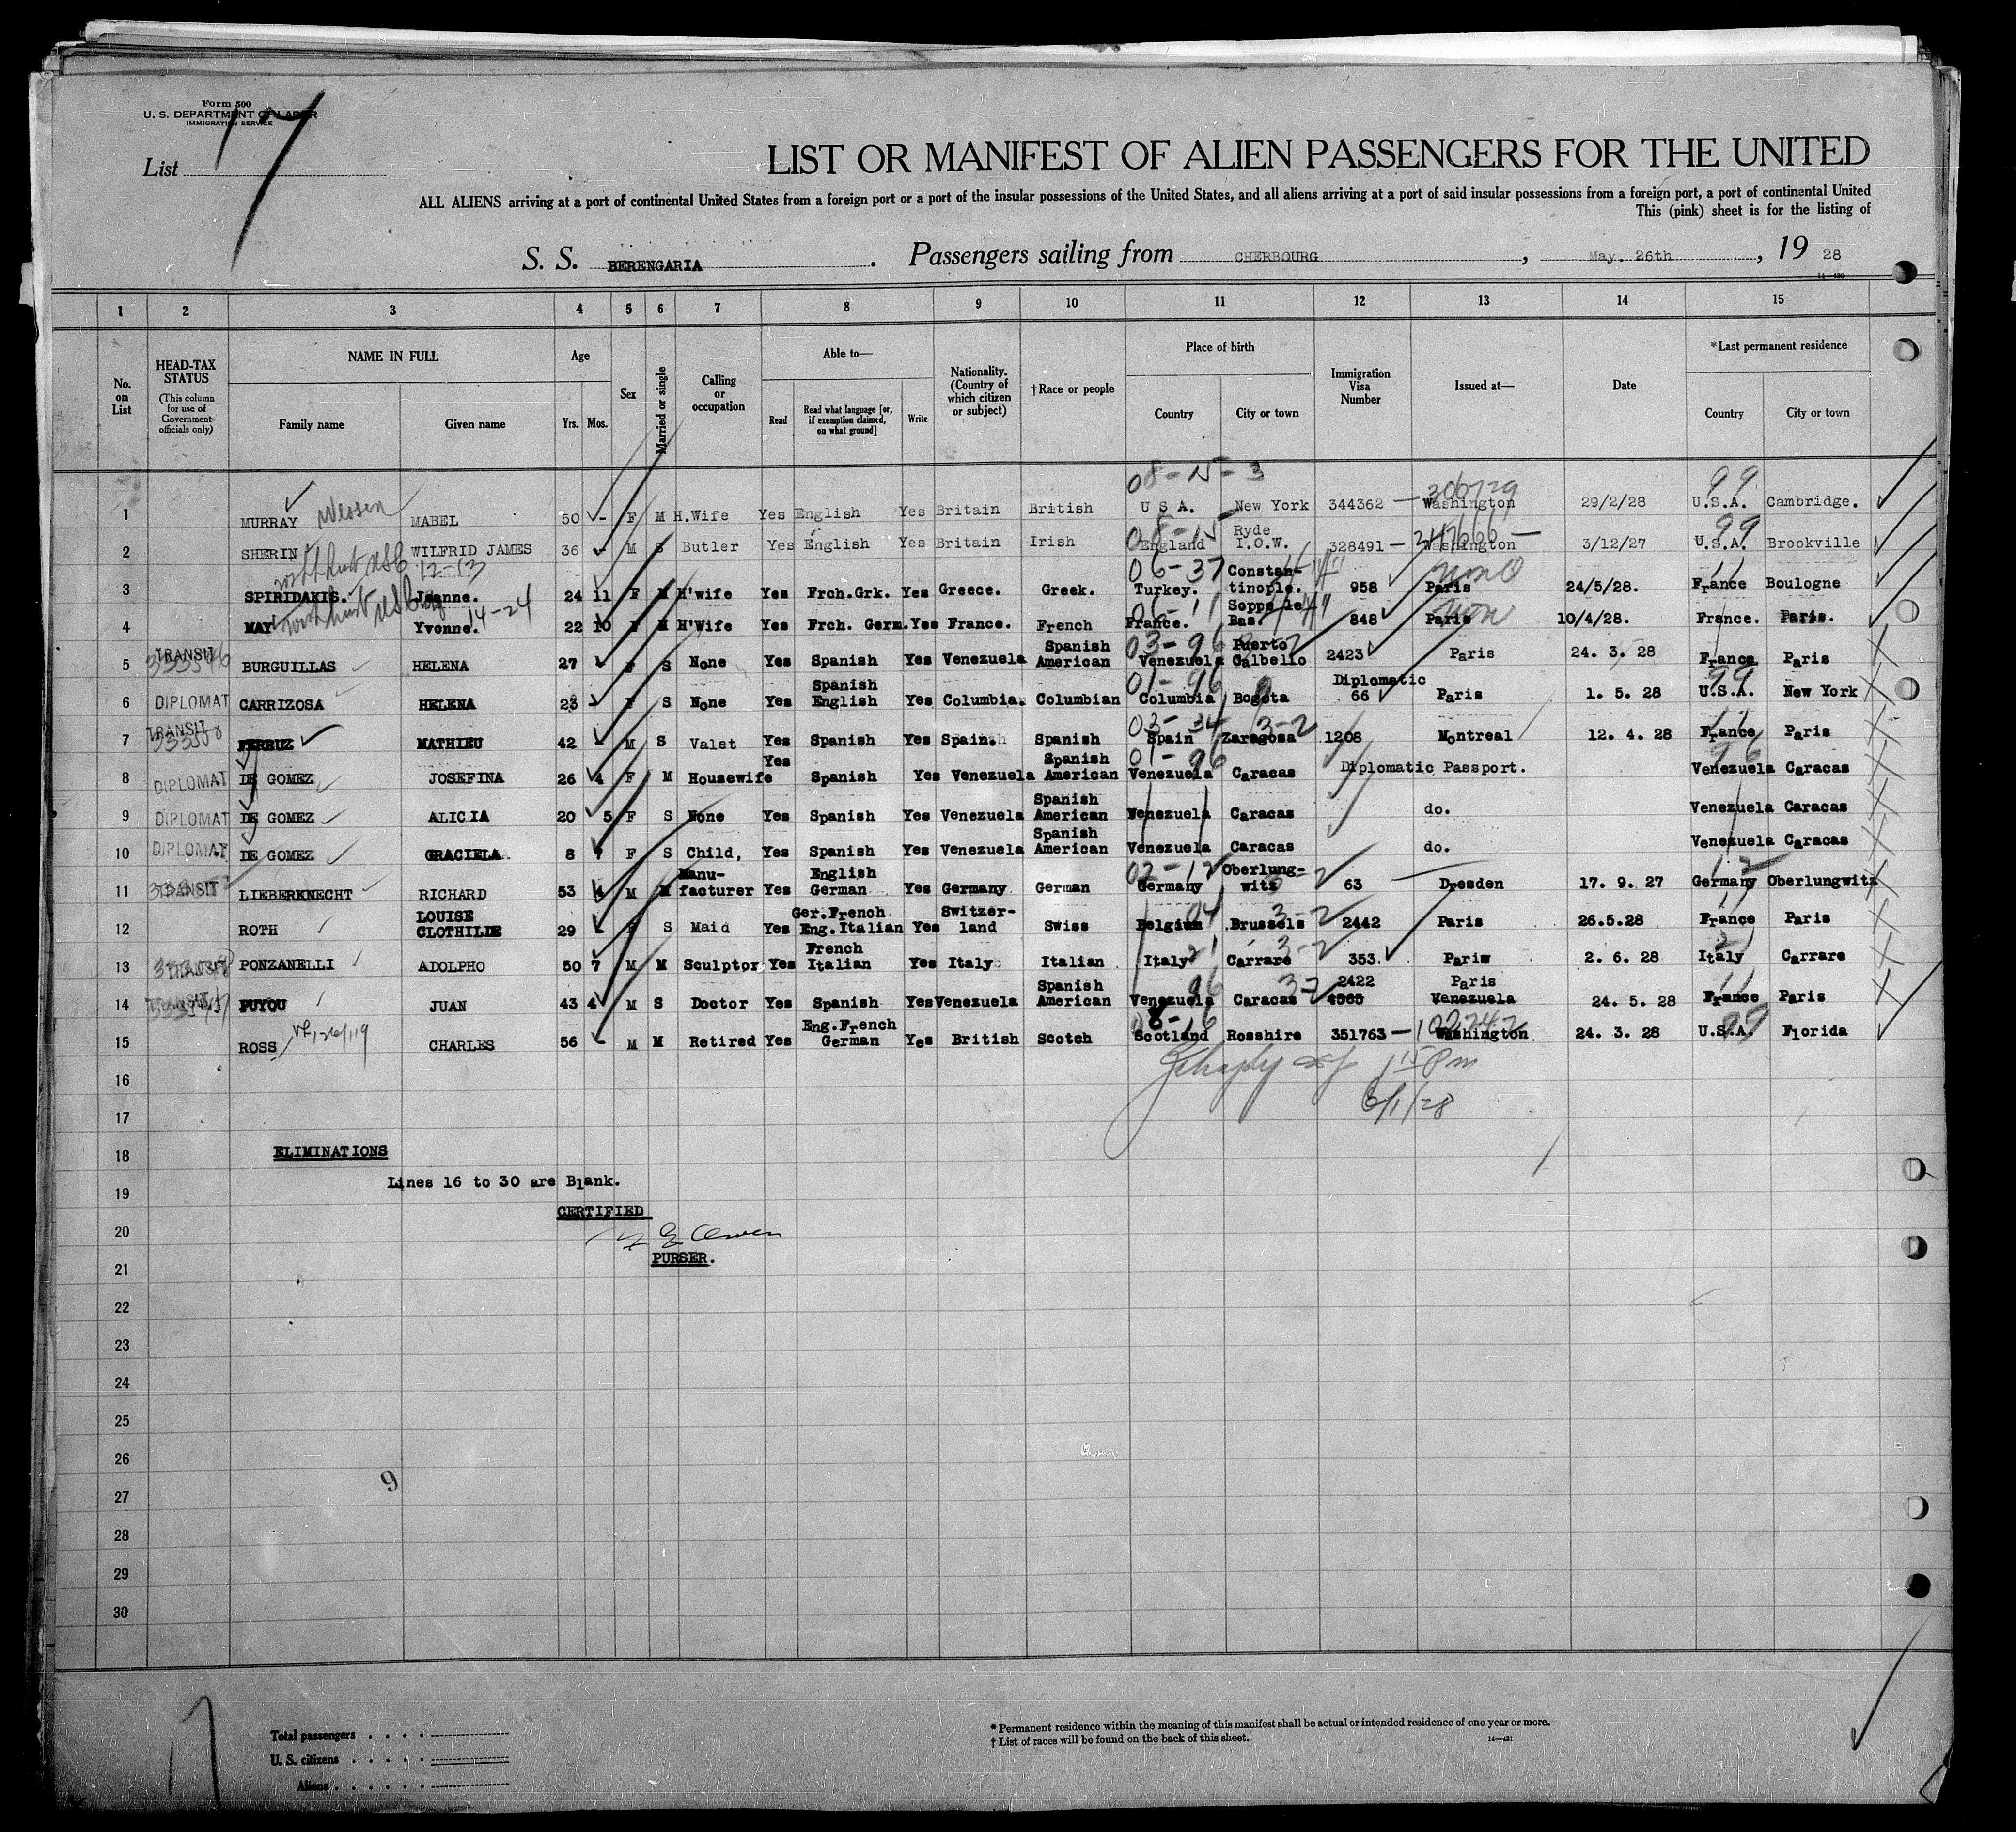 Form 500
U. S. DEPARTMENT OF LABOR
IMMIGRATION SERVICE
List 17
LIST OR MANIFEST OF ALIEN PASSENGERS FOR THE UNITED
ALL ALIENS arriving at a port of continental United States from a foreign port or a port of the insular possessions of the United States, and all aliens arriving at a port of said insular possessions from a foreign port, a port of continental United
This (pink) sheet is for the listing of
S. S. BERENGARIA. Passengers sailing from CHERBOURG, May. 26th, 19 28
1 2 3 4 5 6 7 8 9 10 11 12 13 14 15
No. on List
HEAD-TAX STATUS (This column for use of Government officials only)
NAME IN FULL Family name Given name
Age Yrs. Mos.
Sex
Married or single
Calling or occupation
Able to— Read Read what language [or, if exemption claimed, on what ground] Write
Nationality. (Country of which citizen or subject)
†Race or people
Place of birth Country City or town
Immigration Visa Number
Issued at—
Date
*Last permanent residence Country City or town
08-15-3 306729 99
1 MURRAY MABEL 50 - F M H.Wife Yes English Yes Britain British U S A. New York 344362 — Washington 29/2/28 U.S.A. Cambridge.
08-15 99
2 SHERIN WILFRID JAMES 36 - M S Butler Yes English Yes Britain Irish England Ryde I.O.W. 328491 — Washington 3/12/27 U.S.A. Brookville
12-13 06-37 11
3 SPIRIDAKIS. Jeanne. 24 11 F M H'wife Yes Frch.Grk. Yes Greece. Greek. Turkey. Constan-tinople. 958 Paris 24/5/28. France Boulogne
14-24 06-11
4 MAY Yvonne. 22 10 F M H'Wife Yes Frch. Germ. Yes France. French France. Soppe le Bas. 848 Paris 10/4/28. France. Paris.
03-96
5 TRANSIT BURGUILLAS HELENA 27 F S None Yes Spanish Yes Venezuela Spanish American Venezuela Puerto Calbello 2423 Paris 24. 3. 28 France Paris
01-96 99
6 DIPLOMAT CARRIZOSA HELENA 23 F S None Yes Spanish English Yes Columbia. Columbian Columbia Bogota Diplomatic 66 Paris 1. 5. 28 U.S.A. New York
03-34 3-2 11
7 TRANSIT FERRUZ MATHIEU 42 - M S Valet Yes Spanish Yes Spain. Spanish Spain Zaragosa 1208 Montreal 12. 4. 28 France Paris
01-96 96
8 DIPLOMAT DE GOMEZ JOSEFINA 26 4 F M Housewife Yes Spanish Yes Venezuela Spanish American Venezuela Caracas Diplomatic Passport. Venezuela Caracas
9 DIPLOMAT DE GOMEZ ALICIA 20 5 F S None Yes Spanish Yes Venezuela Spanish American Venezuela Caracas do. Venezuela Caracas
10 DIPLOMAT DE GOMEZ GRACIELA 8 F S Child, Yes Spanish Yes Venezuela Spanish American Venezuela Caracas do. Venezuela Caracas
02-12 12
11 TRANSIT LIEBERKNECHT RICHARD 53 4 M M Manu-facturer Yes English German Yes Germany German Germany Oberlung-witz 63 Dresden 17. 9. 27 Germany Oberlungwitz
04 3-2 11
12 ROTH LOUISE CLOTHILDE 29 F S Maid Yes Ger.French Eng.Italian Yes Switzer-land Swiss Belgium Brussels 2442 Paris 26.5.28 France Paris
21 3-2 21
13 TRANSIT PONZANELLI ADOLPHO 50 7 M M Sculptor Yes French Italian Yes Italy Italian Italy Carrare 353. Paris 2. 6. 28 Italy Carrare
96 3-2 11
14 TRANSIT PUYOU JUAN 43 4 M S Doctor Yes Spanish Yes Venezuela Spanish American Venezuela Caracas 2422 4565 Paris Venezuela 24. 5. 28 France Paris
8-16 102242 99
15 ROSS CHARLES 56 - M M Retired Yes Eng.French German Yes British Scotch Scotland Rosshire 351763 — Washington 24. 3. 28 U.S.A. Florida
16
6/1/28
17
18 ELIMINATIONS
19 Lines 16 to 30 are Blank.
CERTIFIED
20 Owen
21 PURSER.
22
23
24
25
26
27 9
28
29
30
Total passengers
U. S. citizens
Aliens
* Permanent residence within the meaning of this manifest shall be actual or intended residence of one year or more.
† List of races will be found on the back of this sheet.
14—431
17